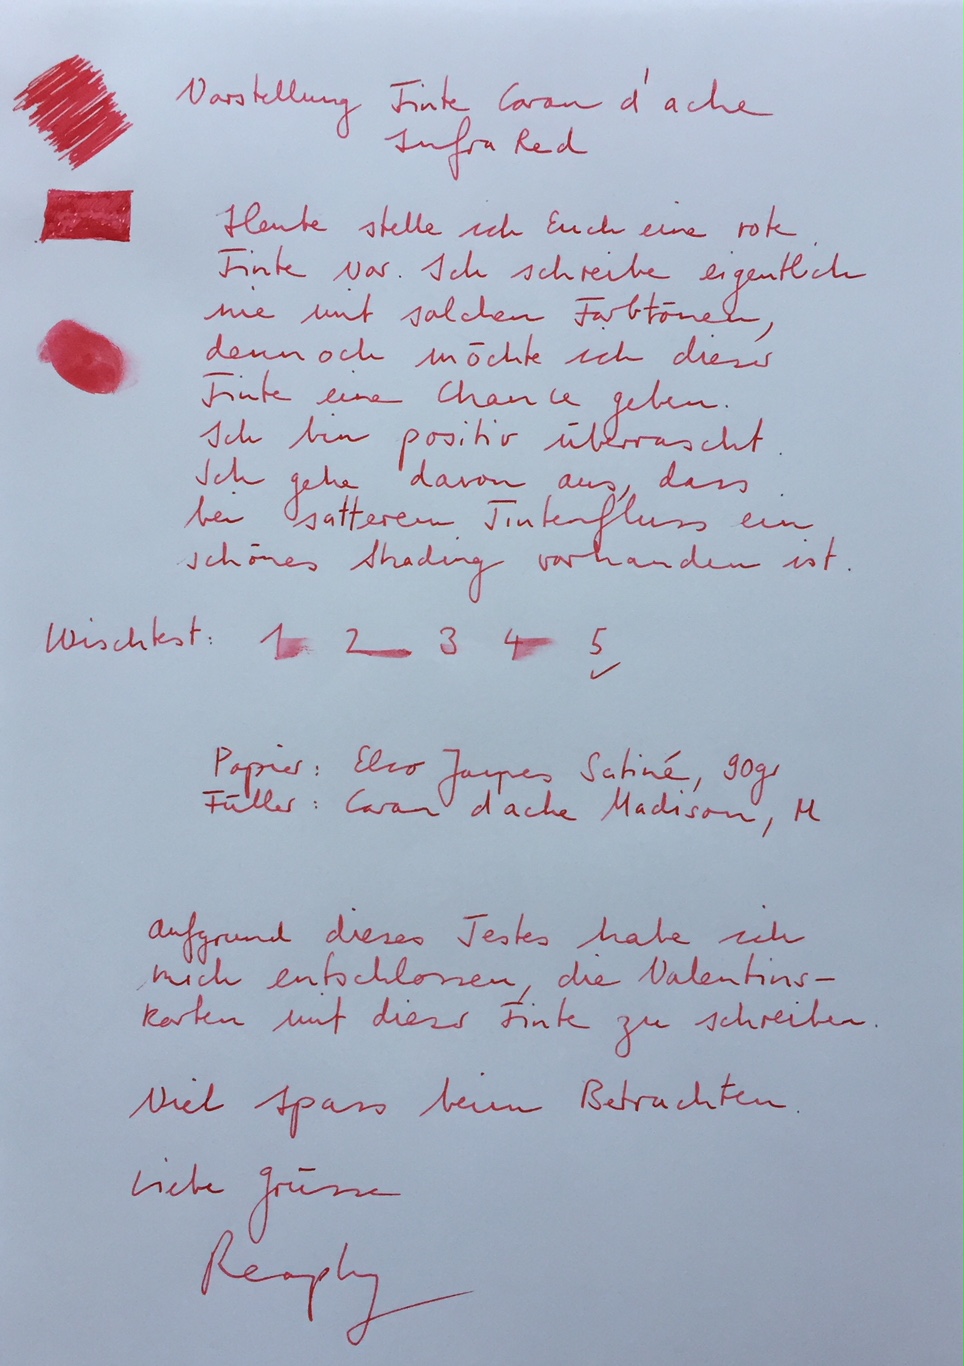 Vorstellung Tinte Caran d'ache
Infra Red
Heute stelle ich Euch eine rote
Tinte vor. Ich schreibe eigentlich
nie mit solchen Farbtönen,
dennoch möchte ich dieser
Tinte eine Chance geben.
Ich bin positiv überrascht.
Ich gehe davon aus, dass
bei satterem Tintenfluss ein
schönes Shading vorhanden ist.
Wischtest: 1 2 3 4 5
Papier: Elco James Satiné, 90gr
Füller: Caran d'ache Madison, M
Aufgrund dieses Testes habe ich
mich entschlossen, die Valentins-
karten mit dieser Tinte zu schreiben.
Viel Spass beim Betrachten.
Liebe Grüsse